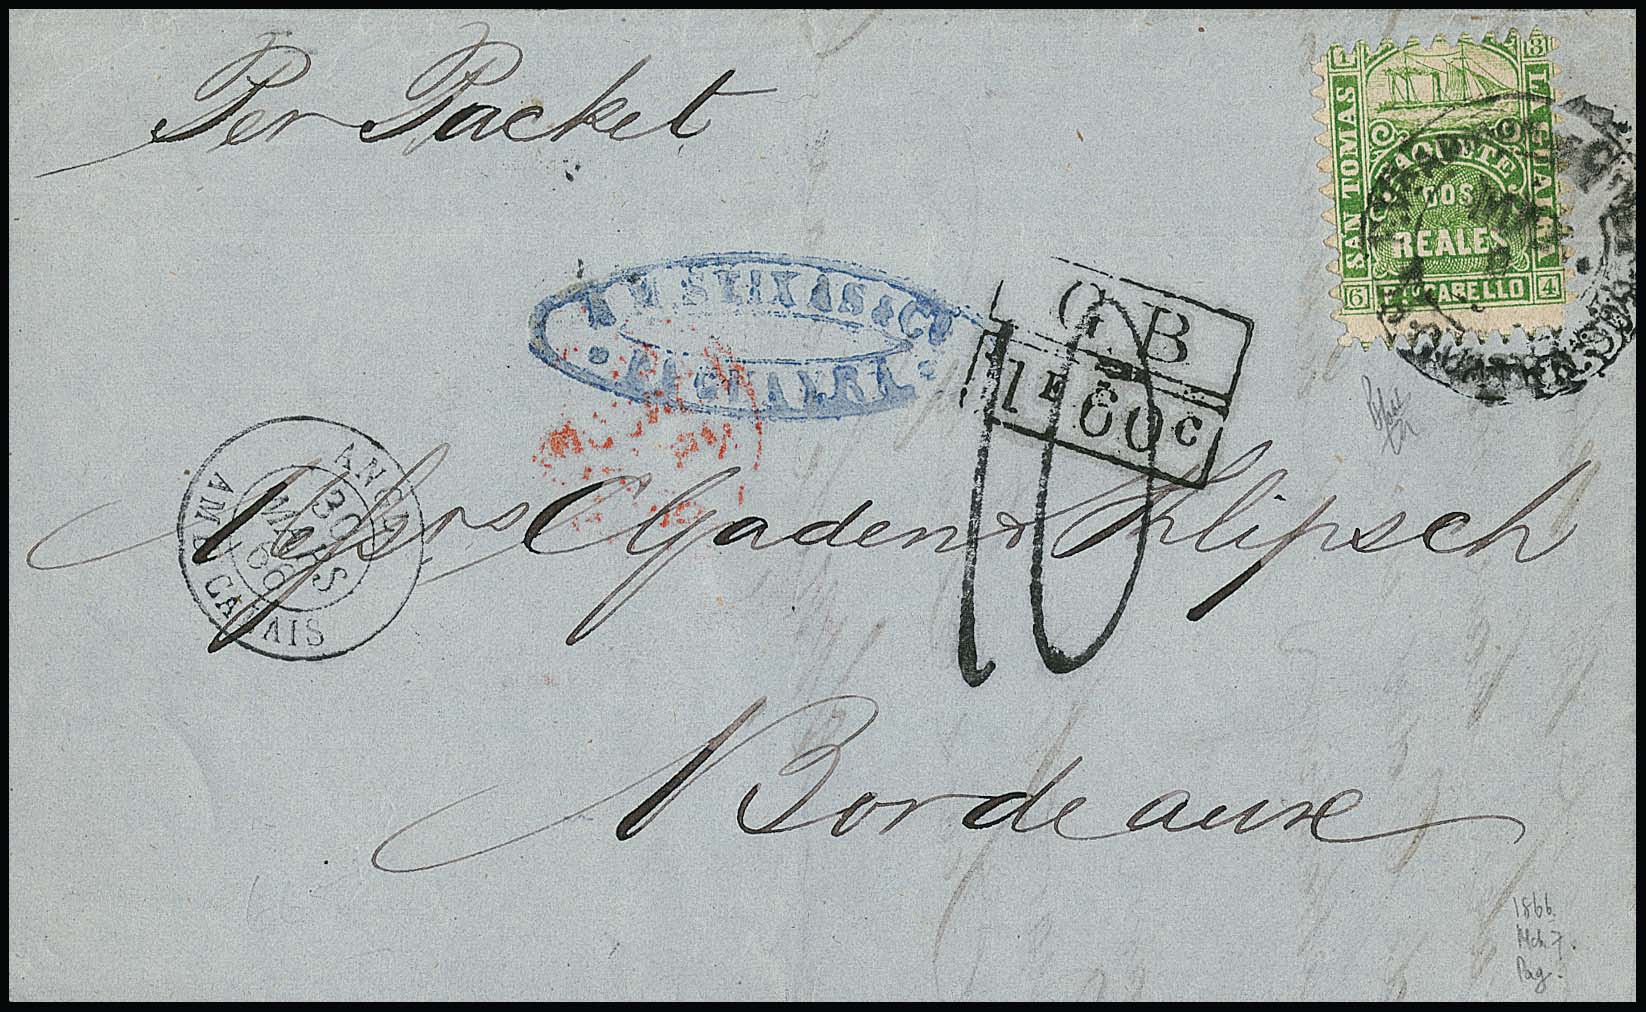 Per Packet
1 8
SAN TOMAS
LA GUAIRA
PAQUETE
DOS
REALES
6 PTO CABELLO 4
SEIXAS & Co
LA GUAYRA
GB
1F60C
10
ANGL.
30
MARS
66
AMB. CALAIS
Messrs Gaden & Klipsch
Bordeaux
1866
Mch 7.
Pag.